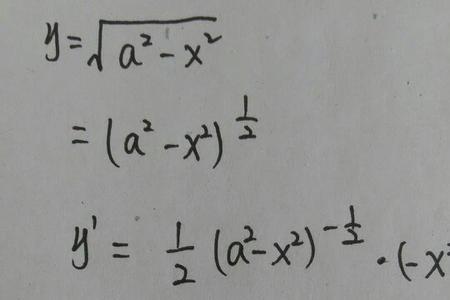 y=√(a²-x²)
=(a²-x²)^(1/2)
y'= 1/2 (a²-x²)^(-1/2) · (-x²